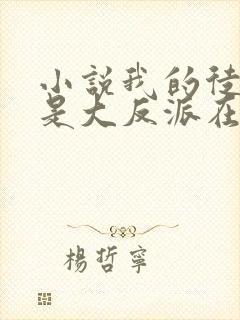 小説我的徒
是大反派在
楊哲寧